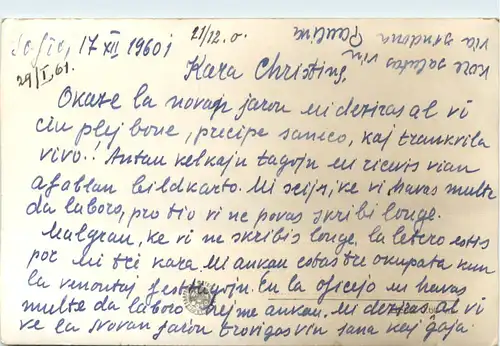 Sofio, 17 XII 1960j
21/12. o.
29/I.61.
kore salutas vin
via amikino Paulina
Kara Christine,
Okaze la novan jaron mi deziras al vi
ciu plej bone, precipe saneco, kaj trankvila
vivo! Antau kelkaju tagojn mi ricevis vian
afablan bildkarto. Mi scijn, ke vi havas multe
da laboro, pro tio vi ne povas skribi longe.
Malgrau, ke vi ne skribis longe, la letero estis
por mi tre kara. Mi ankau estas tre okupata kun
la venontaj festtagojn. En la oficejo mi havas
multe da laboro hejme ankau. Mi deziras al vi
ke la novan jaron trovigas vin sana kaj gaja.